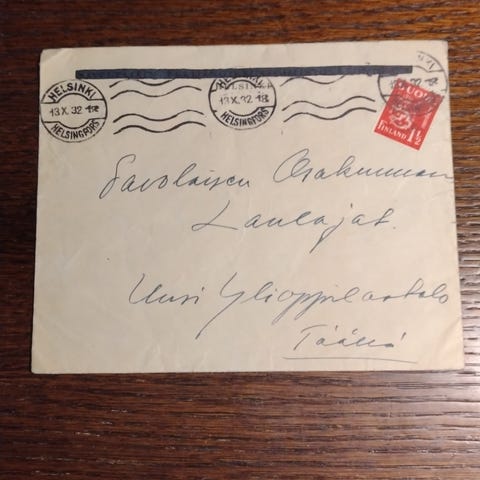 HELSINKI
13.X.32 18
HELSINGFORS
HELSINKI
13.X.32 18
HELSINGFORS
SUOMI
FINLAND 1½
Savolaisen Osakunnan
Laulajat.
Uusi Ylioppilastalo
Täällä